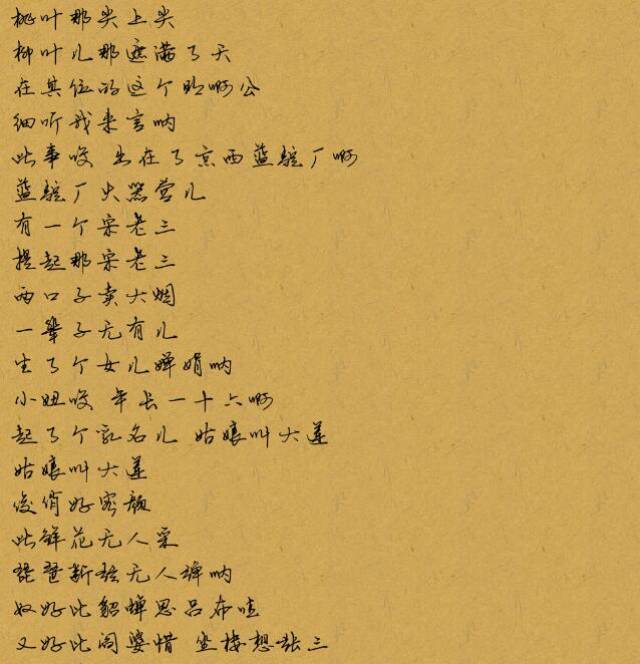 桃叶那尖上尖
柳叶儿那遮满了天
在其位的这个明啊公
细听我来言呐
此事哎 出在了京西蓝靛厂啊
蓝靛厂火器营儿
有一个宋老三
提起那宋老三
两口子卖大烟
一辈子无有儿
生了个女儿婵娟呐
小妞哎 年长一十六啊
起了个乳名儿 姑娘叫大莲
姑娘叫大莲
俊俏好容颜
此鲜花无人采
琵琶断弦无人弹呐
奴好比貂蝉思吕布哇
又好比阎婆惜 坐楼想张三